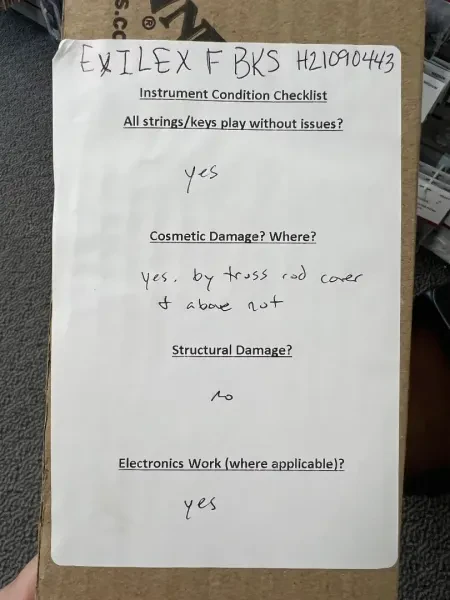 S.CO
AN
®
EXILEX F BKS H21090443
Instrument Condition Checklist
All strings/keys play without issues?
yes
Cosmetic Damage? Where?
yes. by truss rod cover
& above nut
Structural Damage?
no
Electronics Work (where applicable)?
yes